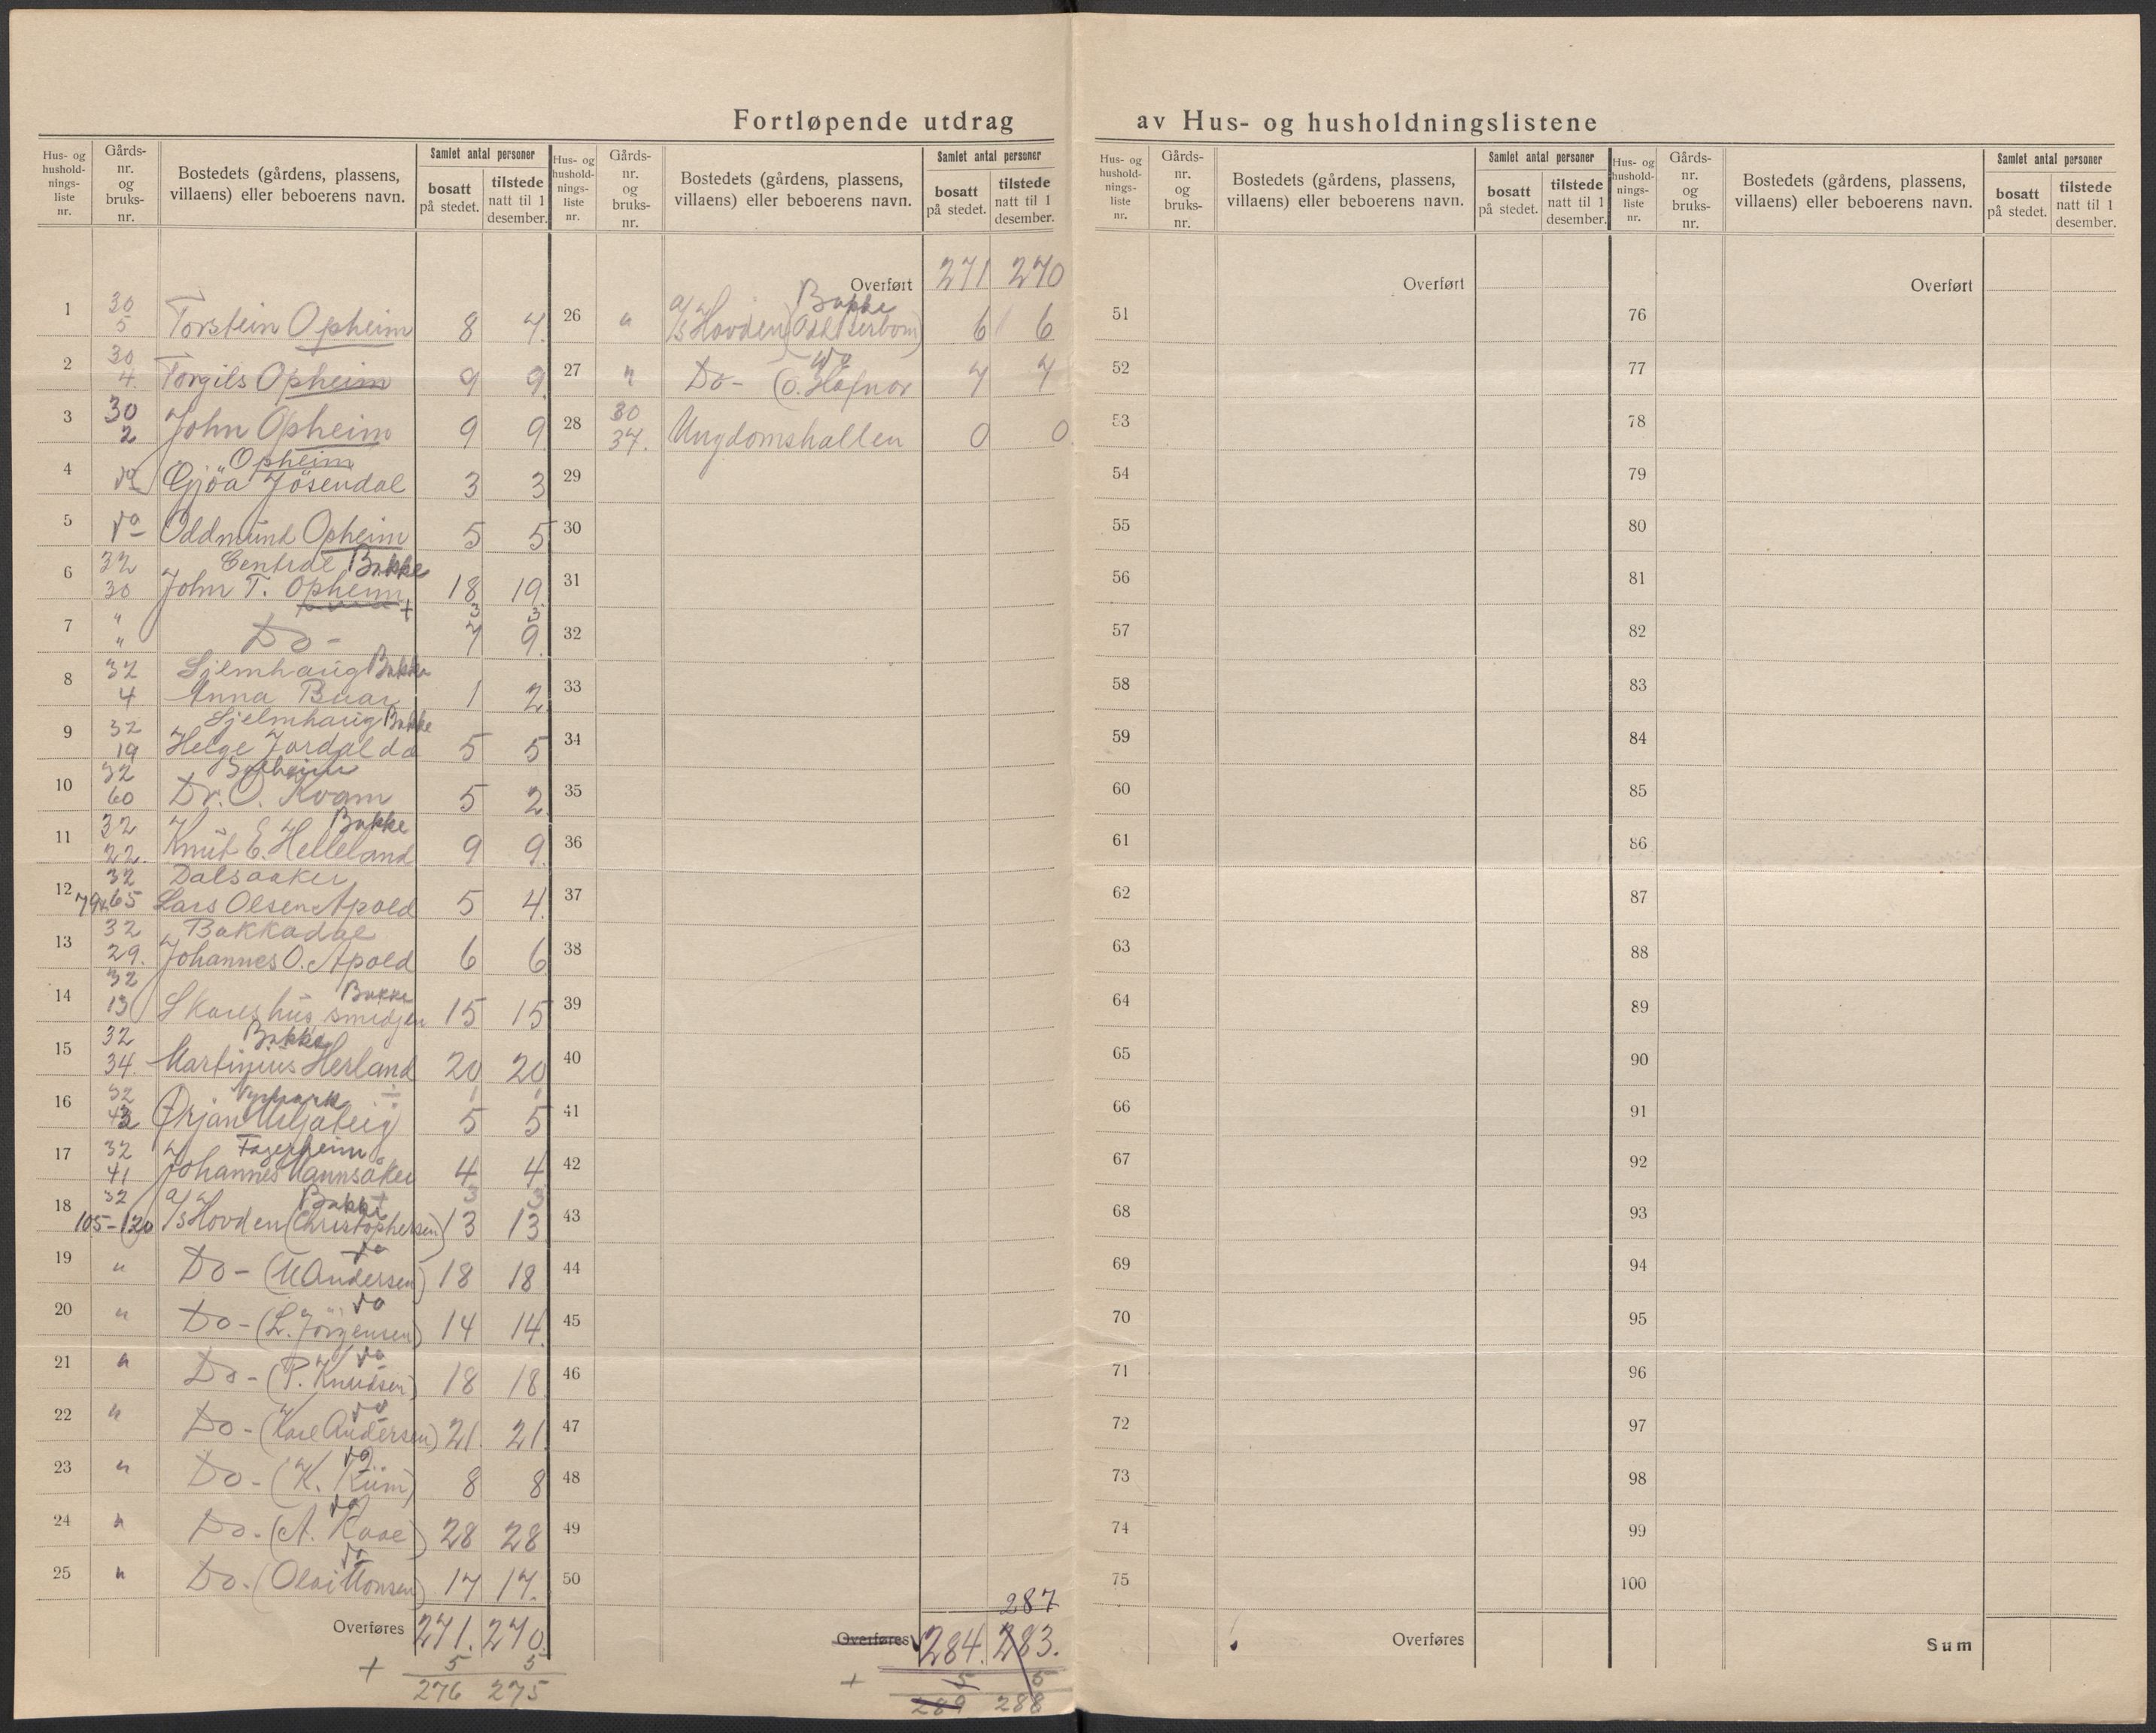 Fortløpende utdrag av Hus- og husholdningslistene
Hus- og husholdnings-liste nr.
Gårds-nr. og bruks-nr.
Bostedets (gårdens, plassens, villaens) eller beboerens navn.
Samlet antal personer
bosatt på stedet.
tilstede natt til 1 desember.
1 30 5 Torstein Opheim 8 7.
2 30 4. Torgils Opheim 9 9.
3 30 2 John Opheim 9 9.
Opheim
4 do Gjöa Jösendal 3 3
5 do Oddmund Opheim 5 5
Central Bakke
6 32 30 John T. Opheim 18 19.
+ 3 3
7 " " Do - 7 9.
Hjelmhaug Bakke
8 32 4 Anna Buar 1 2
Hjelmhaug Bakke
9 32 19 Helge Jordal do 5 5
Solheim
10 32 60 Dr. O. Kvam 5 2
Bakke
11 32 22. Knut E. Helleland 9 9.
Dalsaaker
12 32 79+65 Lars Olsen Apold 5 4.
Bakkadal
13 32 29. Johannes O. Apold 6 6
Bakke
14 32 13 Skareshus smedjen 15 15
Bakke
15 32 34. Martinius Herland 20 20
÷ 1 1
16 32 43 Ørjan 5 5
Fagerheim
17 32 41 Johannes Mannsåker 4 4
+ 3 3
Bakke
18 32 105-120 A/S Hovden (Christophersen) 13 13
do
19 " Do - (M Andersen) 18 18
do
20 " Do - (L. Jörgensen) 14 14.
do
21 " Do - (P. Knudsen) 18 18.
do
22 " Do - (Kare Andersen) 21. 21.
do
23 " Do - (K. Küm) 8 8
do
24 " Do. (A. Kaae) 28 28
do
25 " Do. (Olai Monsen) 17 17.
Overføres 271. 270.
+ 5 5
276 275
Hus- og husholdnings-liste nr.
Gårds-nr. og bruks-nr.
Bostedets (gårdens, plassens, villaens) eller beboerens navn.
Samlet antal personer
bosatt på stedet.
tilstede natt til 1 desember.
Overført 271 270
Bakke
26 " A/S Hovden 6 6
do
27 " Do - (O. Hafnor 7 7
28 30 37. Ungdomshallen 0 0.
29
30
31
32
33
34
35
36
37
38
39
40
41
42
43
44
45
46
47
48
49
50
287
Overføres 284. 283.
+ 5 5
289 288
Hus- og husholdnings-liste nr.
Gårds-nr. og bruks-nr.
Bostedets (gårdens, plassens, villaens) eller beboerens navn.
Samlet antal personer
bosatt på stedet.
tilstede natt til 1 desember.
Overført
51
52
53
54
55
56
57
58
59
60
61
62
63
64
65
66
67
68
69
70
71
72
73
74
75
Overføres
Hus- og husholdnings-liste nr.
Gårds-nr. og bruks-nr.
Bostedets (gårdens, plassens, villaens) eller beboerens navn.
Samlet antal personer
bosatt på stedet.
tilstede natt til 1 desember.
Overført
76
77
78
79
80
81
82
83
84
85
86
87
88
89
90
91
92
93
94
95
96
97
98
99
100
Sum